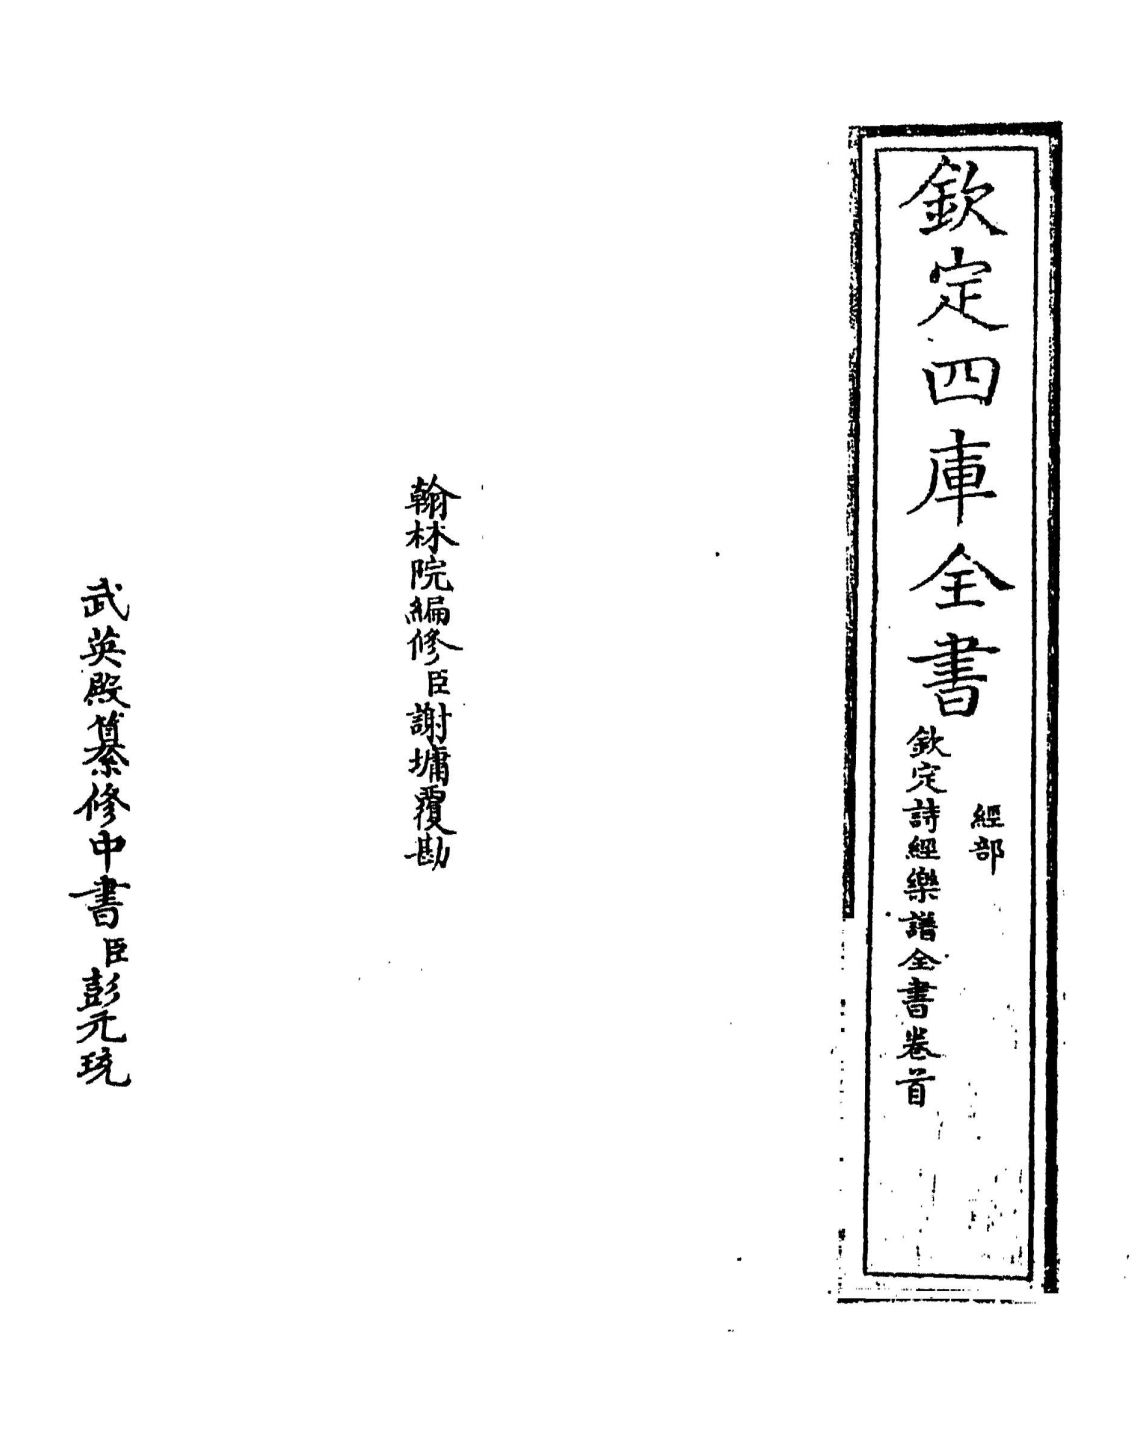 欽定四庫全書
經部
欽定詩經樂譜全書卷首
翰林院編修臣謝墉覆勘
武英殿纂修中書臣彭元珫